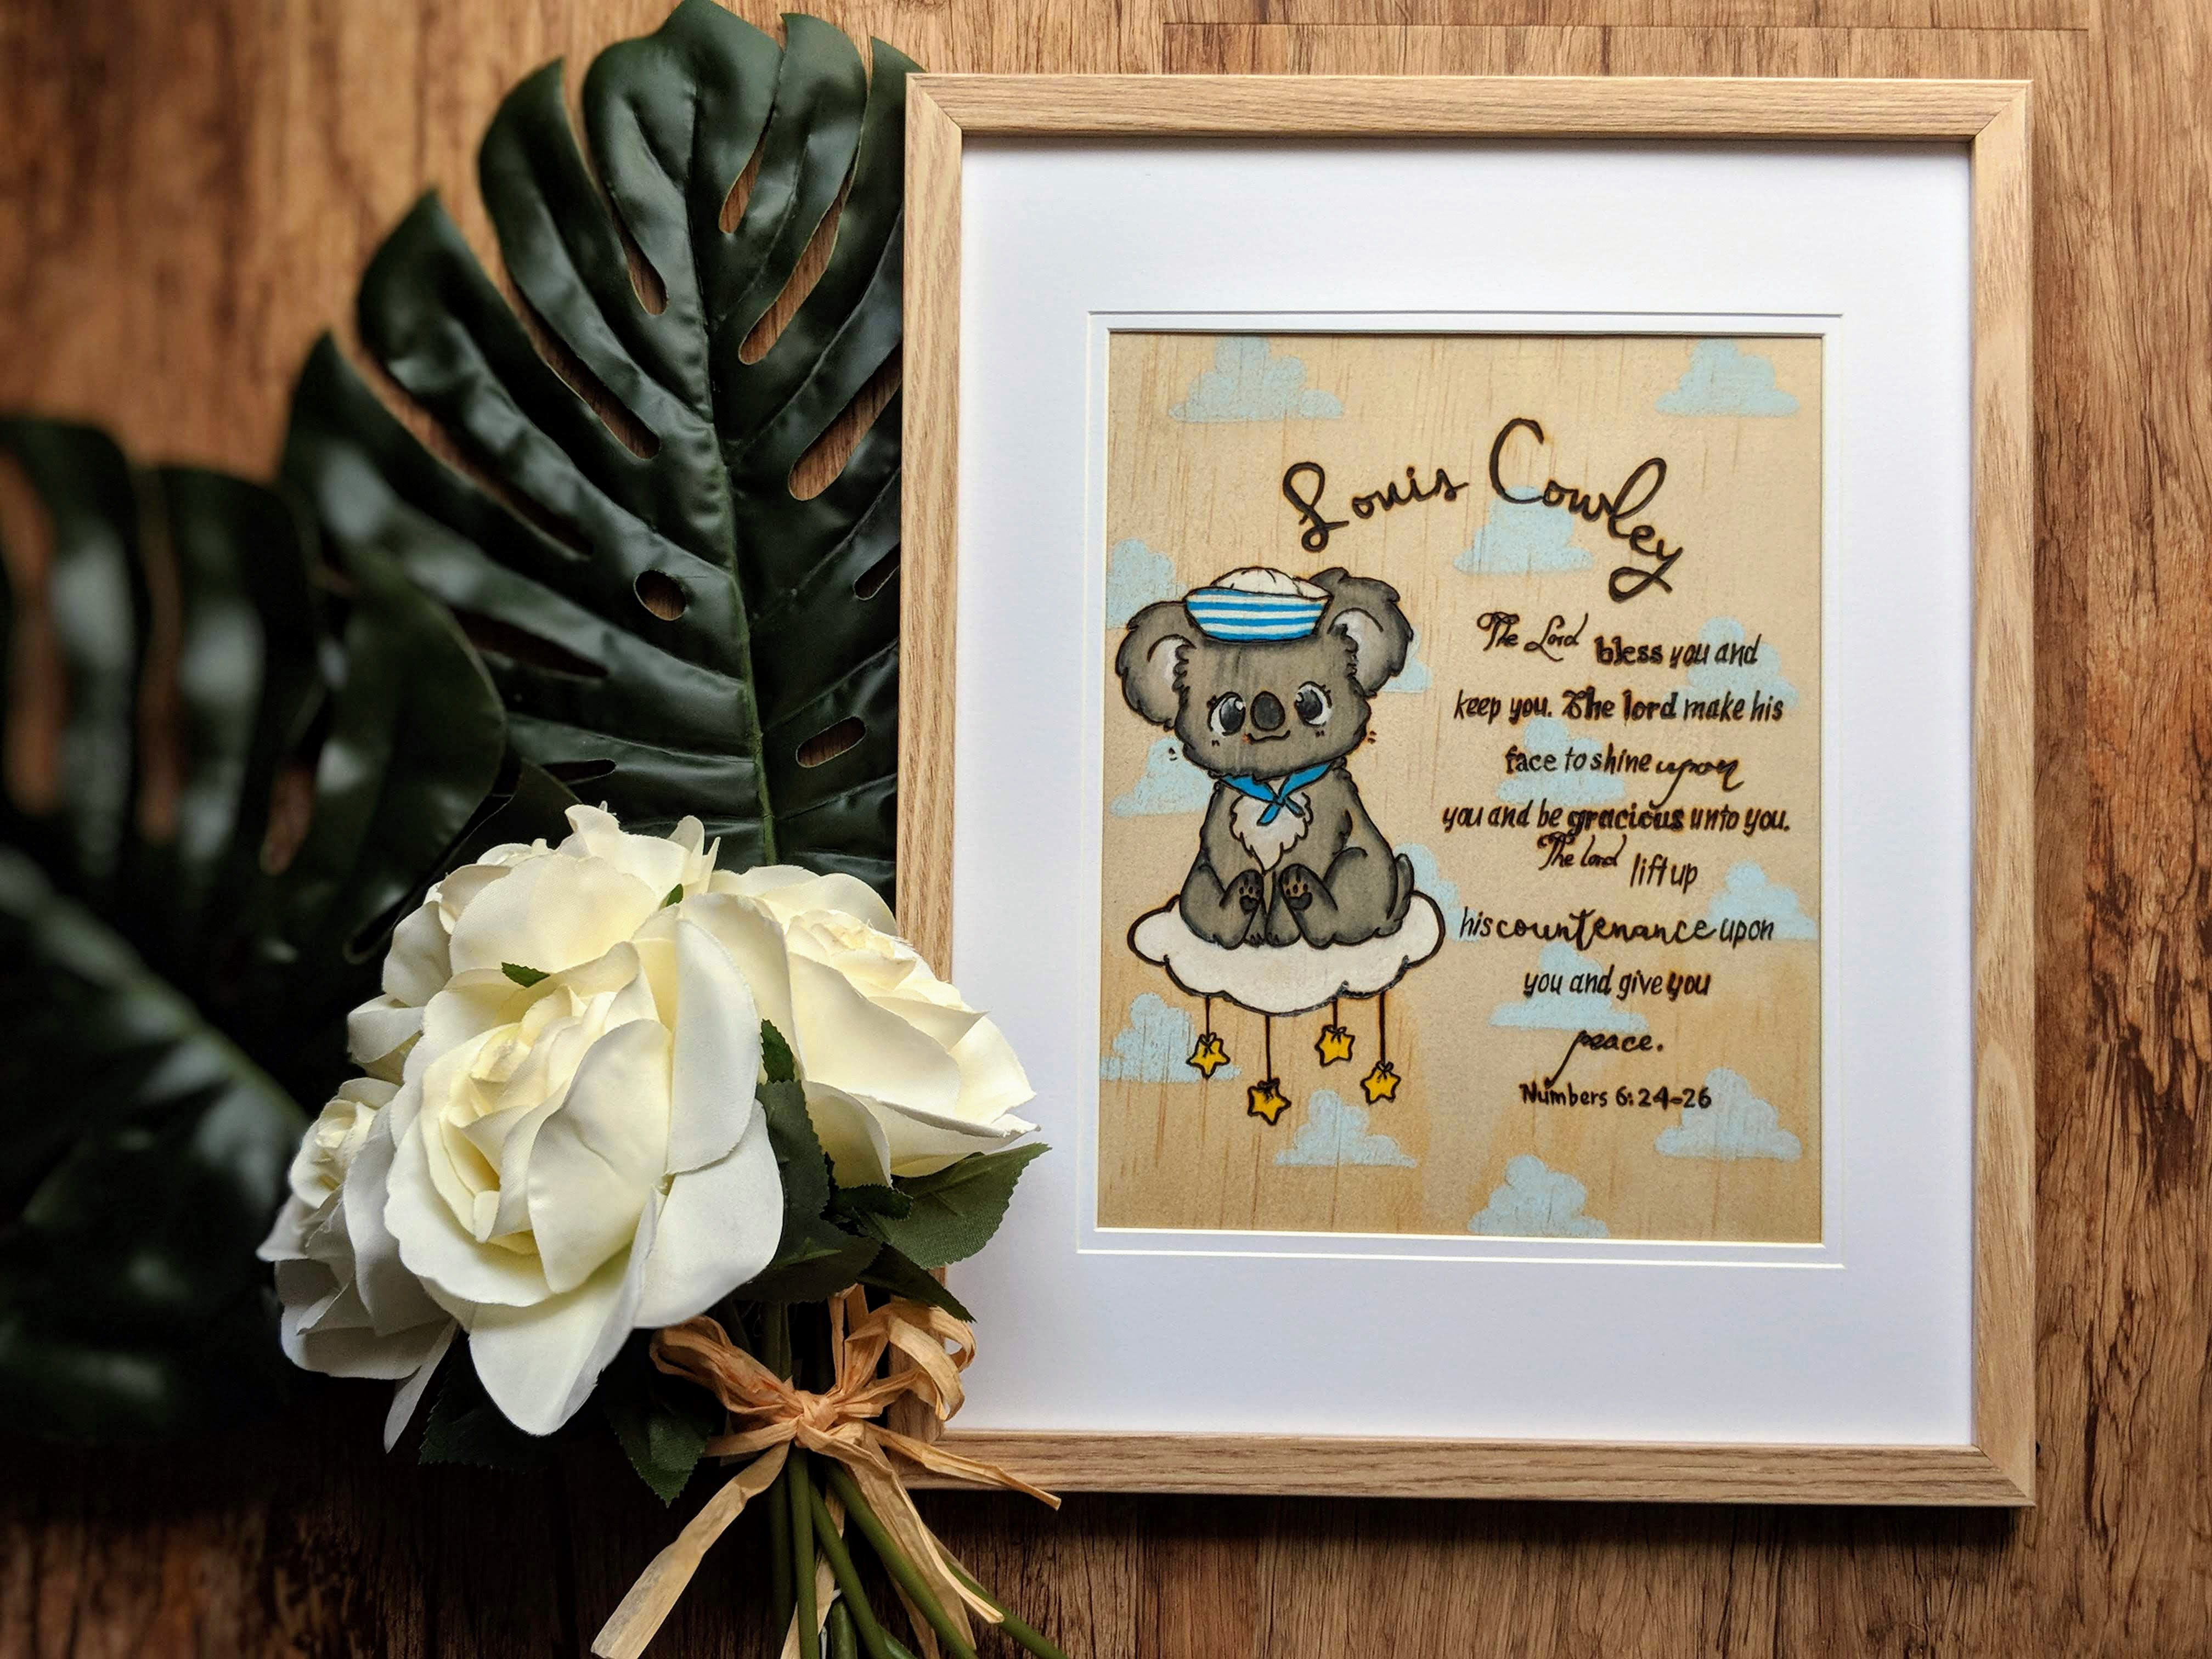 Louis Cowley
The Lord bless you and
keep you. The lord make his
face to shine upon
you and be gracious unto you.
The lord lift up
his countenance upon
you and give you
peace.
Numbers 6:24-26